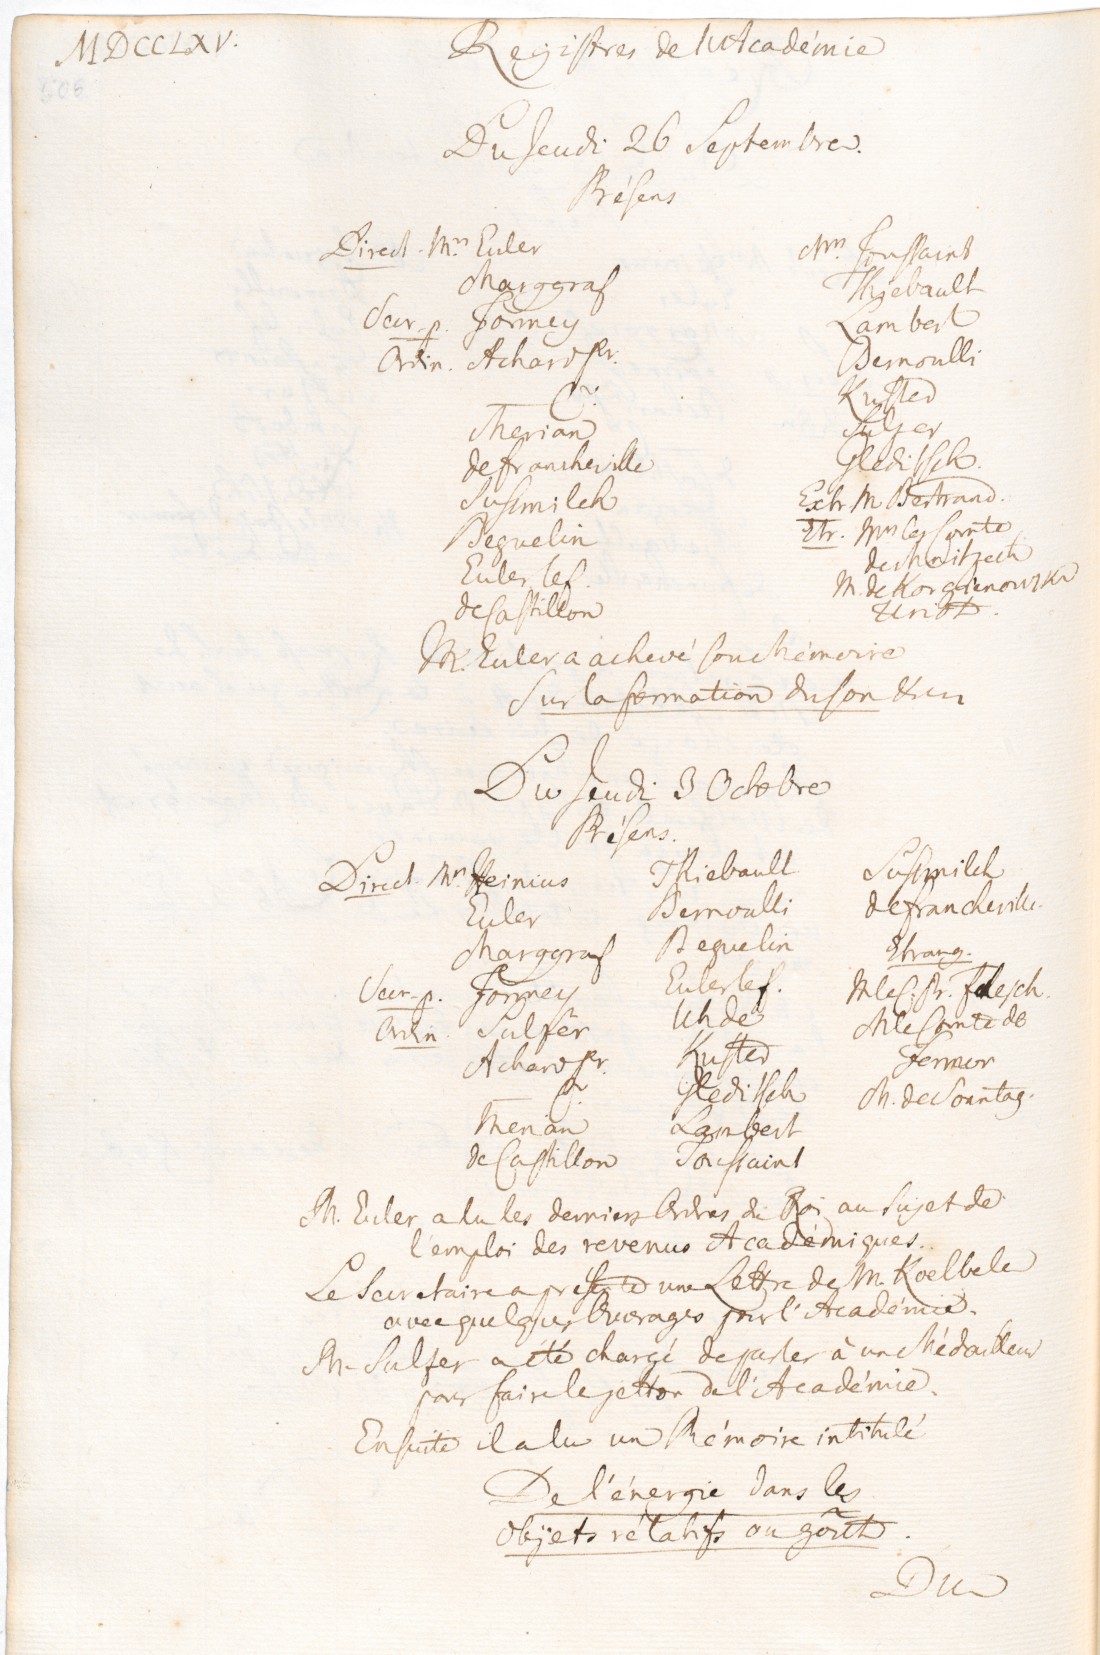 MDCCLXV.
Registres de l'Académie
Du Jeudi 26 Septembre.
Présens
Direct. Mrs. Euler
Marggraf
Secr. p. Formey
Ordin. Achard Pr.
Cr.
Merian
de Francheville
Susmilch
Beguelin
Euler le f.
de Castillon
Mrs. Toussaint
Thiebault
Lambert
Bernoulli
Kuster
Sulzer
Gleditsch.
Extr. M. Bertrand.
Etr. Mrs les Comte
M. de
M. Euler a achevé son Mémoire
Sur la formation du son &c.
Du Jeudi 3 Octobre
Présens.
Direct. Mrs. Heinius
Euler
Marggraf
Secr. p. Formey
Ordin. Sulzer
Achard Pr.
Cr.
Merian
de Castillon
Thiebault
Bernoulli
Beguelin
Euler le f.
Uhde
Kuster
Gleditsch
Lambert
Toussaint
Susmilch
de Francheville.
Etrang.
M le C. Pr.
M le Comte de
Fermor
M. de Sonntag.
M. Euler a lu les derniers Ordres du Roi au sujet de
l'emploi des revenus Académiques.
Le Secretaire a présenté une Lettre de M. Koelbele
avec quelques Ouvrages pour l'Académie.
M. Sulzer a été chargé de parler à un Médailleur
pour faire le jetton de l'Académie.
Ensuite il a lu un Mémoire intitulé
De l'énergie dans les
Objets rélatifs au goût.
Du